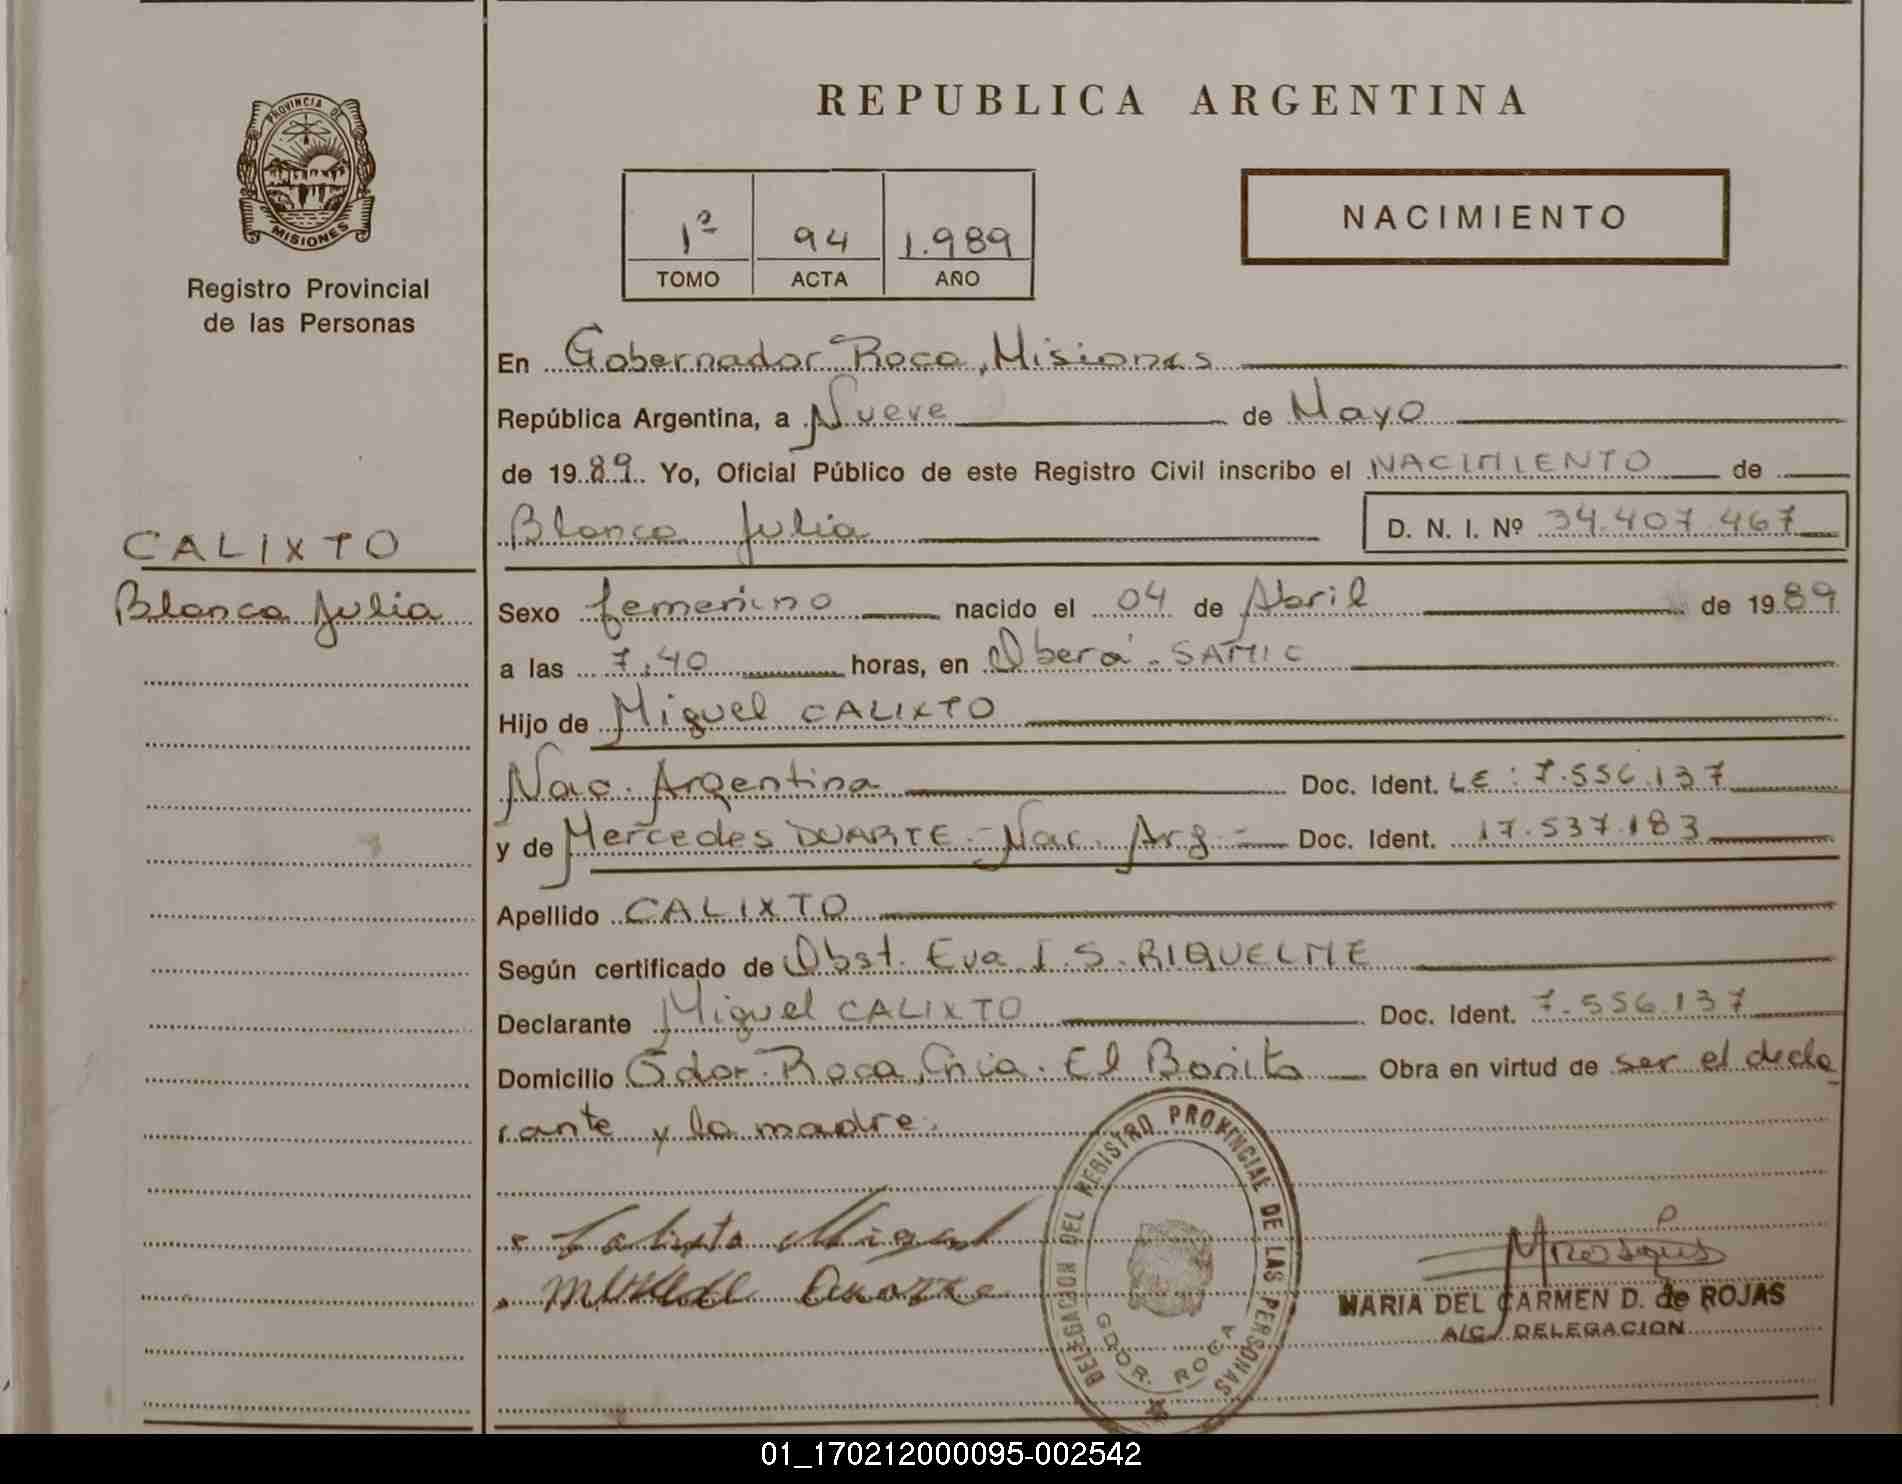 PROVINCIA DE
MISIONES
Registro Provincial
de las Personas
CALIXTO
Blanca Julia
REPUBLICA ARGENTINA
1º 94 1.989
TOMO ACTA AÑO
NACIMIENTO
En Gobernador Roca, Misiones
República Argentina, a Nueve de Mayo
de 1989. Yo, Oficial Público de este Registro Civil inscribo el NACIMIENTO de
Blanca Julia D. N. I. Nº 34.407.467
Sexo femenino nacido el 04 de Abril de 1989
a las 7,40 horas, en Oberá - SAMIC
Hijo de Miguel CALIXTO
Nac. Argentina Doc. Ident. LE: 7.556.137
y de Mercedes DUARTE - Nac. Arg. - Doc. Ident. 17.537.183
Apellido CALIXTO
Según certificado de Obst. Eva I. S. RIQUELME
Declarante Miguel CALIXTO Doc. Ident. 7.556.137
Domicilio Gdor. Roca, Cnia. El Bonito Obra en virtud de ser el decla
rante y la madre.
Calixto Miguel
DELEGACION DEL REGISTRO PROVINCIAL DE LAS PERSONAS
GDOR. ROCA
MARIA DEL CARMEN D. de ROJAS
A/C. DELEGACION
01_170212000095-002542